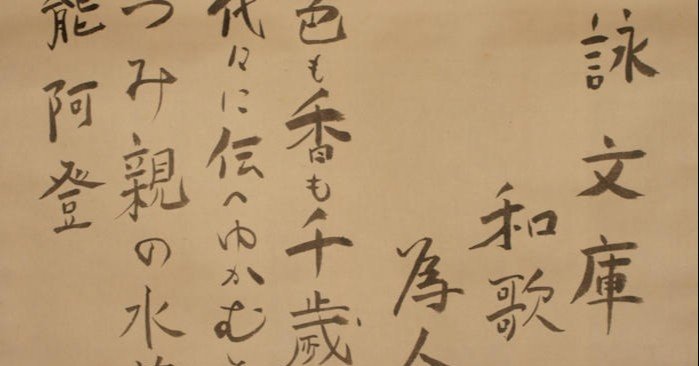 詠文庫
和歌
為人
色も香も千歳
代々に伝へゆかむ
つみ親の水
能阿登